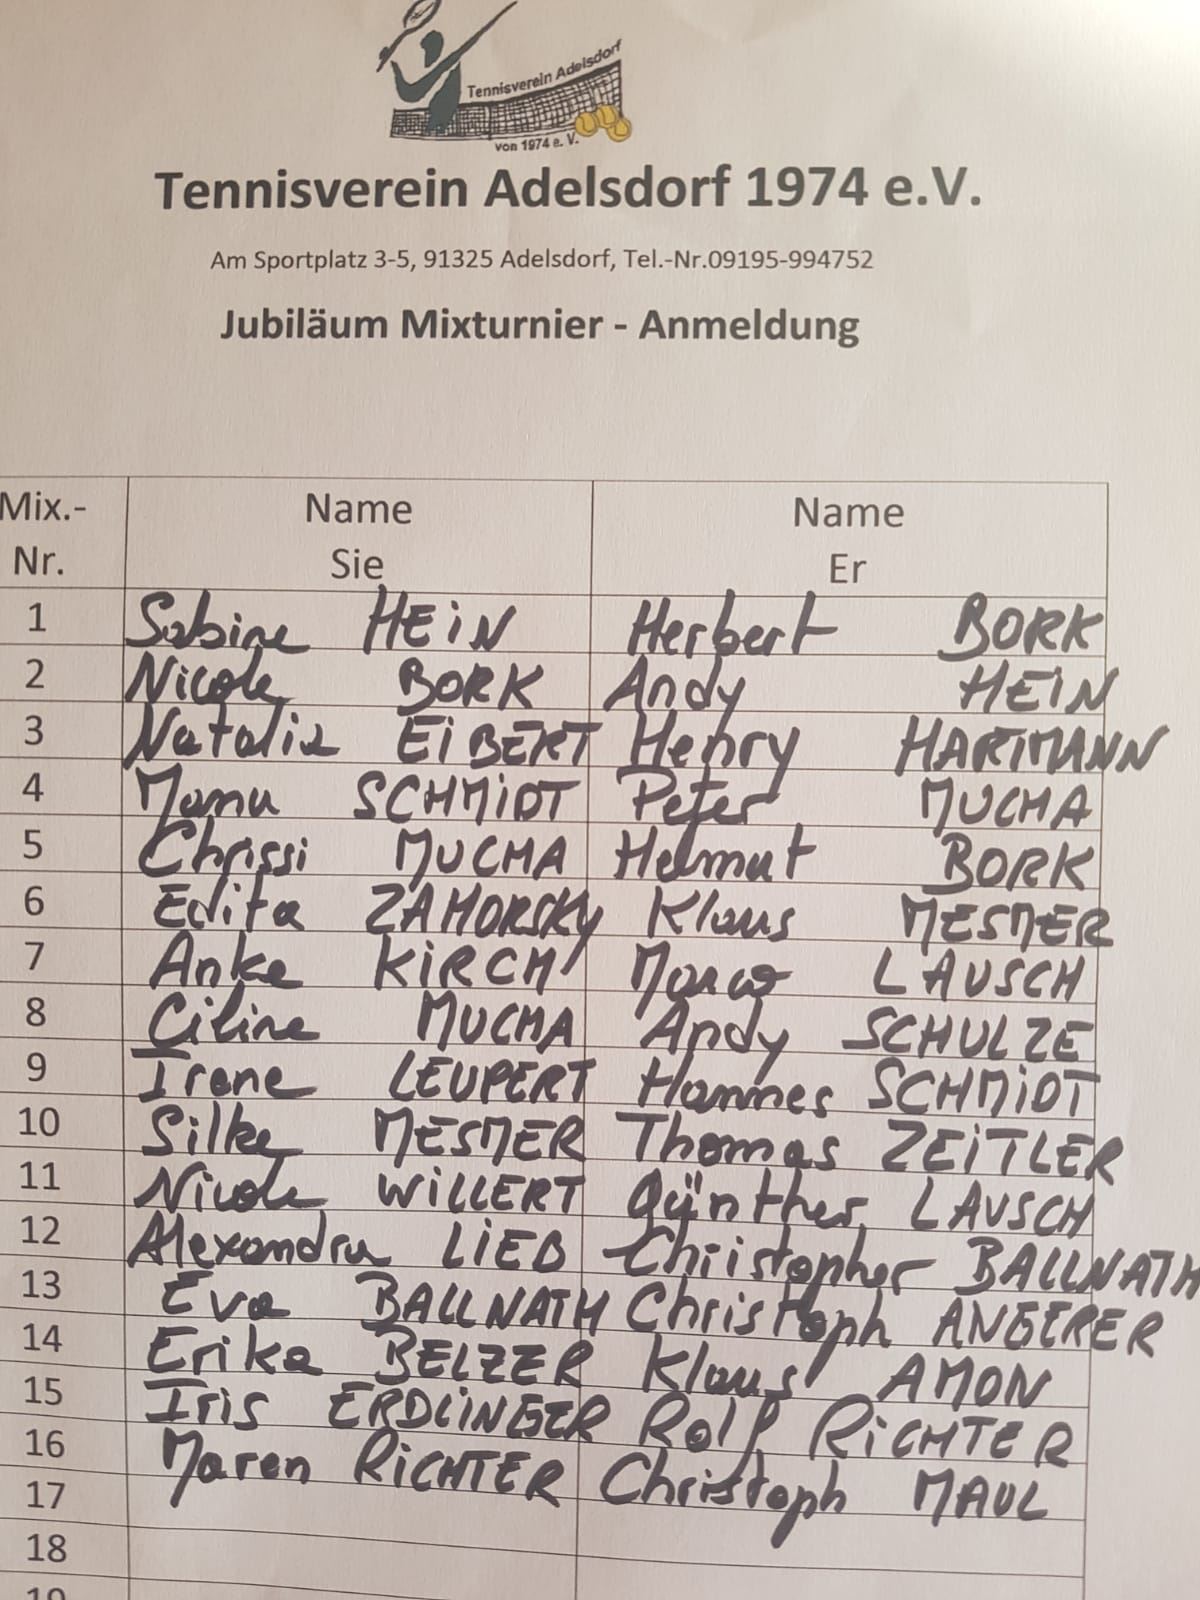 Tennisverein Adelsdorf
von 1974 e. V.
Tennisverein Adelsdorf 1974 e.V.
Am Sportplatz 3-5, 91325 Adelsdorf, Tel.-Nr.09195-994752
Jubiläum Mixturnier - Anmeldung
Mix.- Name Name
Nr. Sie Er
1 Sabine HEiN Herbert BORK
2 Nicole BORK Andy HEiN
3 Natalia EiBERT Henry HARTMANN
4 Manu SCHMiDT Peter MUCHA
5 Chrissi MUCHA Helmut BORK
6 Edita ZAHORSKY Klaus MESMER
7 Anke KiRCH Marco LAUSCH
8 Celine MUCHA Andy SCHULZE
9 Irene LEUPERT Hannes SCHMiDT
10 Silke MESMER Thomas ZEiTLER
11 Nicole WiLLERT Günther LAUSCH
12 Alexandra LiEB Christopher BALLNATH
13 Eva BALLNATH Christoph ANGERER
14 Erika BELZER Klaus AMON
15 Iris ERDLiNGER Rolf RiCHTER
16 Maren RiCHTER Christoph MAUL
17
18
19